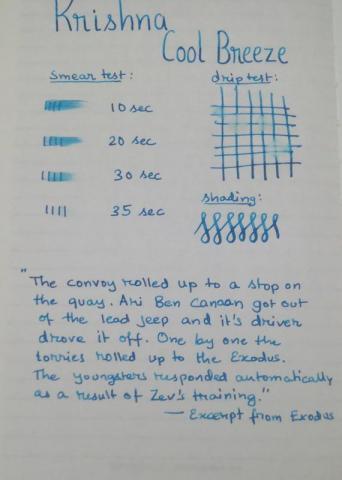 Krishna
Cool Breeze
Smear test:
drip test:
10 sec
20 sec
30 sec
35 sec
shading:
"The convoy rolled up to a stop on
the quay. Ari Ben Canaan got out
of the lead jeep and it's driver
drove it off. One by one the
lorries rolled up to the Exodus.
The youngsters responded automatically
as a result of Zev's training."
— Excerpt from Exodus